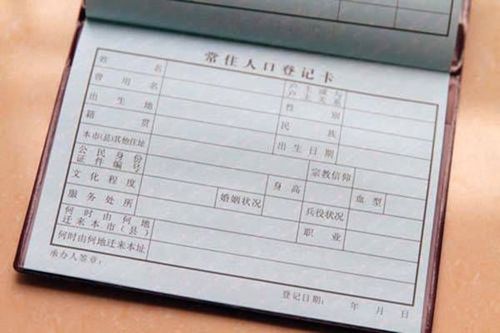 常住人口登记卡
姓名 户主或与户主关系
曾用名 性别
出生地 民族
籍贯 出生日期
本市(县)其他住址 宗教信仰
公民身份证件编号 身高 血型
文化程度 婚姻状况 兵役状况
服务处所 职业
何时由何地迁来本市(县)
何时由何地迁来本址
承办人签章:
登记日期: 年 月 日